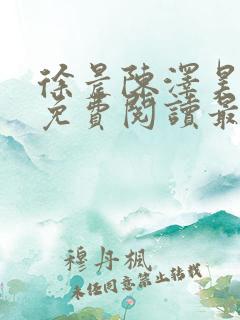 徐景陳澤昊
免費閱讀最
穆丹楓
未經同意禁止转載